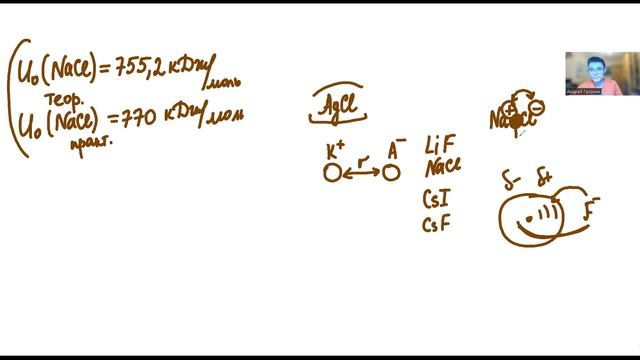 U₀(NaCl) = 755,2 кДж/моль
теор.
U₀(NaCl) = 770 кДж/моль
практ.
AgCl
K⁺ r A⁻
LiF
NaCl
CsI
CsF
⊕ ⊖
NaCl
δ- δ+
F⁻
Андрей Галанин